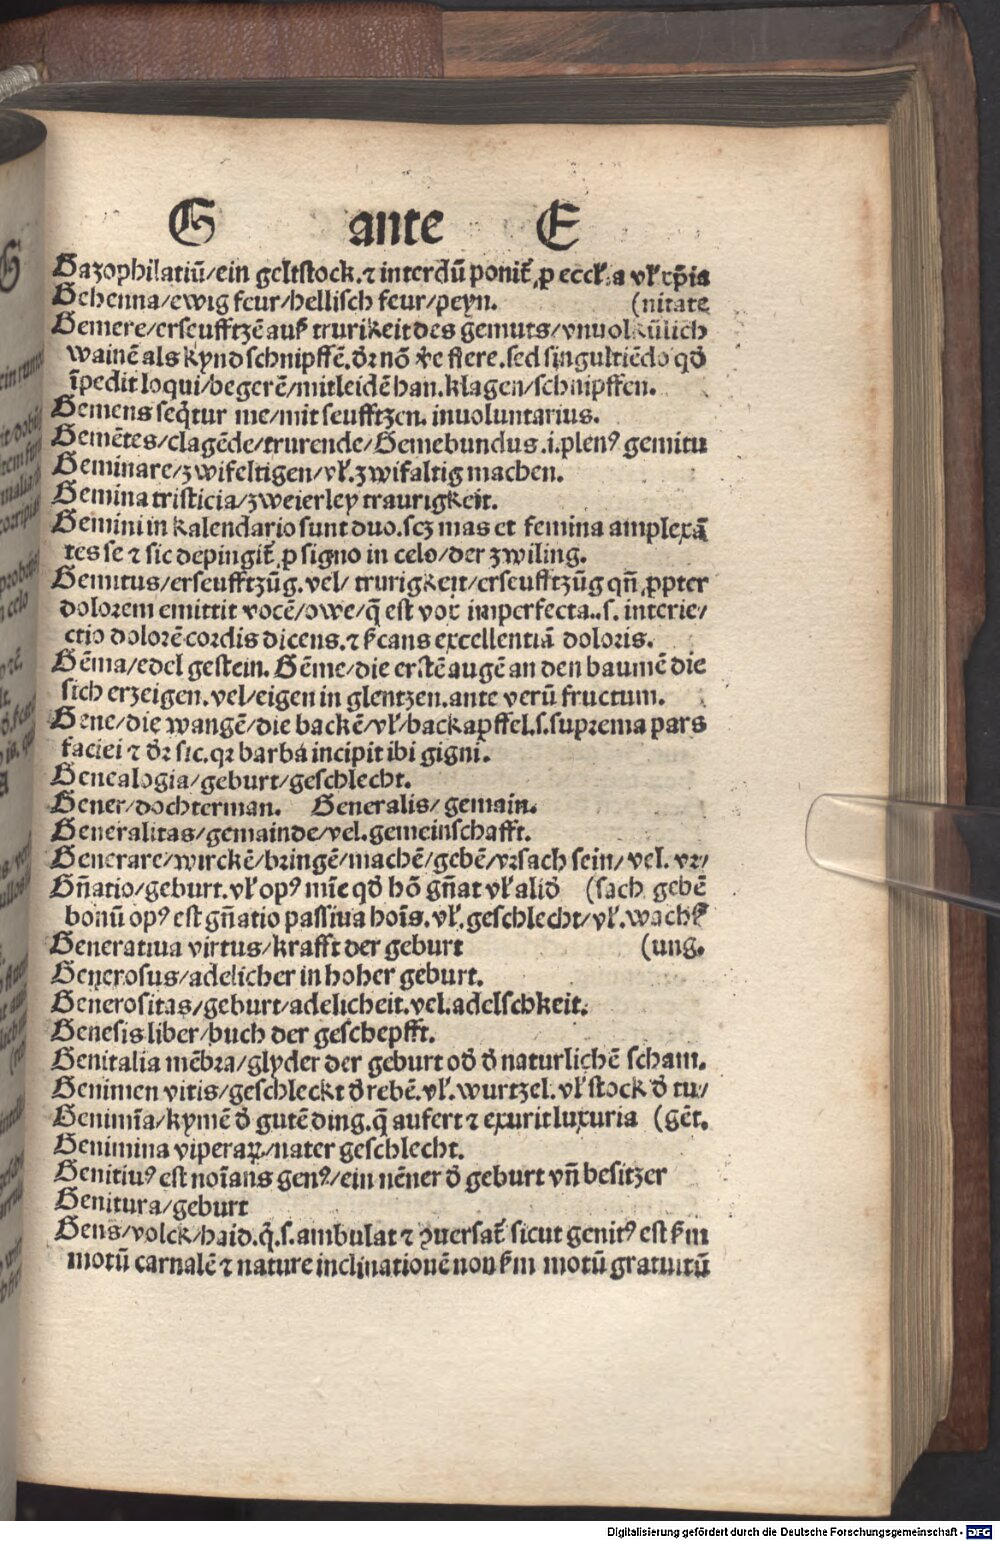 G ante E
Gazophilatiū/ein geltstock.⁊ interdū ponit̄ ꝓ eccl'ia vl' cp̄ia
Gehenna/ewig feur/hellisch feur/peyn. (nitate
Gemere/erseufftzē auß trurikeit des gemuts/vnuolkūlich
wainē als kynd schnipffē. dr̄ nō de flere. sed singultiēdo qđ
īpedit loqui/begerē/mitleidē han. klagen/schnipffen.
Gemens seq̄tur me/mit seufftzen. inuoluntarius.
Gemētes/clagēde/trurende/Gemebundus .i. plenꝰ gemitu
Geminare/zwifeltigen/vl'. zwifaltig machen.
Gemina tristicia/zweierley traurigkeit.
Gemini in kalendario sunt duo. scz mas et femina amplexā
tes se ⁊ sic depingit̄ ꝓ signo in celo/der zwiling.
Gemitus/erseufftzūg. vel/ trurigkeit/erseufftzūg qn̄ ꝓpter
dolorem emittit vocē/owe/q̄ est vox imperfecta..s. interie/
ctio dolorē cordis dicens. ⁊ s̄cans excellentiā doloris.
Gēma/edel gestein. Gēme/die erstē augē an den baumē die
sich erzeigen. vel/eigen in glentzen. ante verū fructum.
Gene/die wangē/die backē/vl'/backapffel. s. suprema pars
faciei ⁊ dr̄ sic. qꝛ barba incipit ibi gigni.
Genealogia/geburt/geschlecht.
Gener/dochterman. Generalis/gemain.
Generalitas/gemainde/vel. gemeinschafft.
Generare/wirckē/bringē/machē/gebē/vrsach sein/ vel. vr/
Gn̄atio/geburt. vl' opꝰ mīe qđ hō gn̄at vl' aliđ (sach gebē
bonū opꝰ est gn̄atio passiua hoīs. vl'. geschlecht/vl'. wachß
Generatiua virtus/krafft der geburt (ung.
Generosus/adelicher in hoher geburt.
Generositas/geburt/adelicheit. vel. adelschkeit.
Genesis liber/buch der geschepfft.
Genitalia mēbra/glyder der geburt od đ naturlichē scham.
Genimen vitis/geschleckt đ rebē. vl'. wurtzel. vl' stock đ tu/
Genimīa/kymē đ gutē ding. q̄ aufert ⁊ exurit luxuria (gēt.
Genimina viperaꝝ/nater geschlecht.
Genitiuꝰ est noīans genꝰ/ein nēner đ geburt vn̄ besitzer
Genitura/geburt
Gens/volck/haid. q̄. s. ambulat ⁊ ꝯuersat̄ sicut genitꝰ est s̄m
motū carnalē ⁊ nature inclinationē non s̄m motū gratuitū
Digitalisierung gefördert durch die Deutsche Forschungsgemeinschaft - DFG